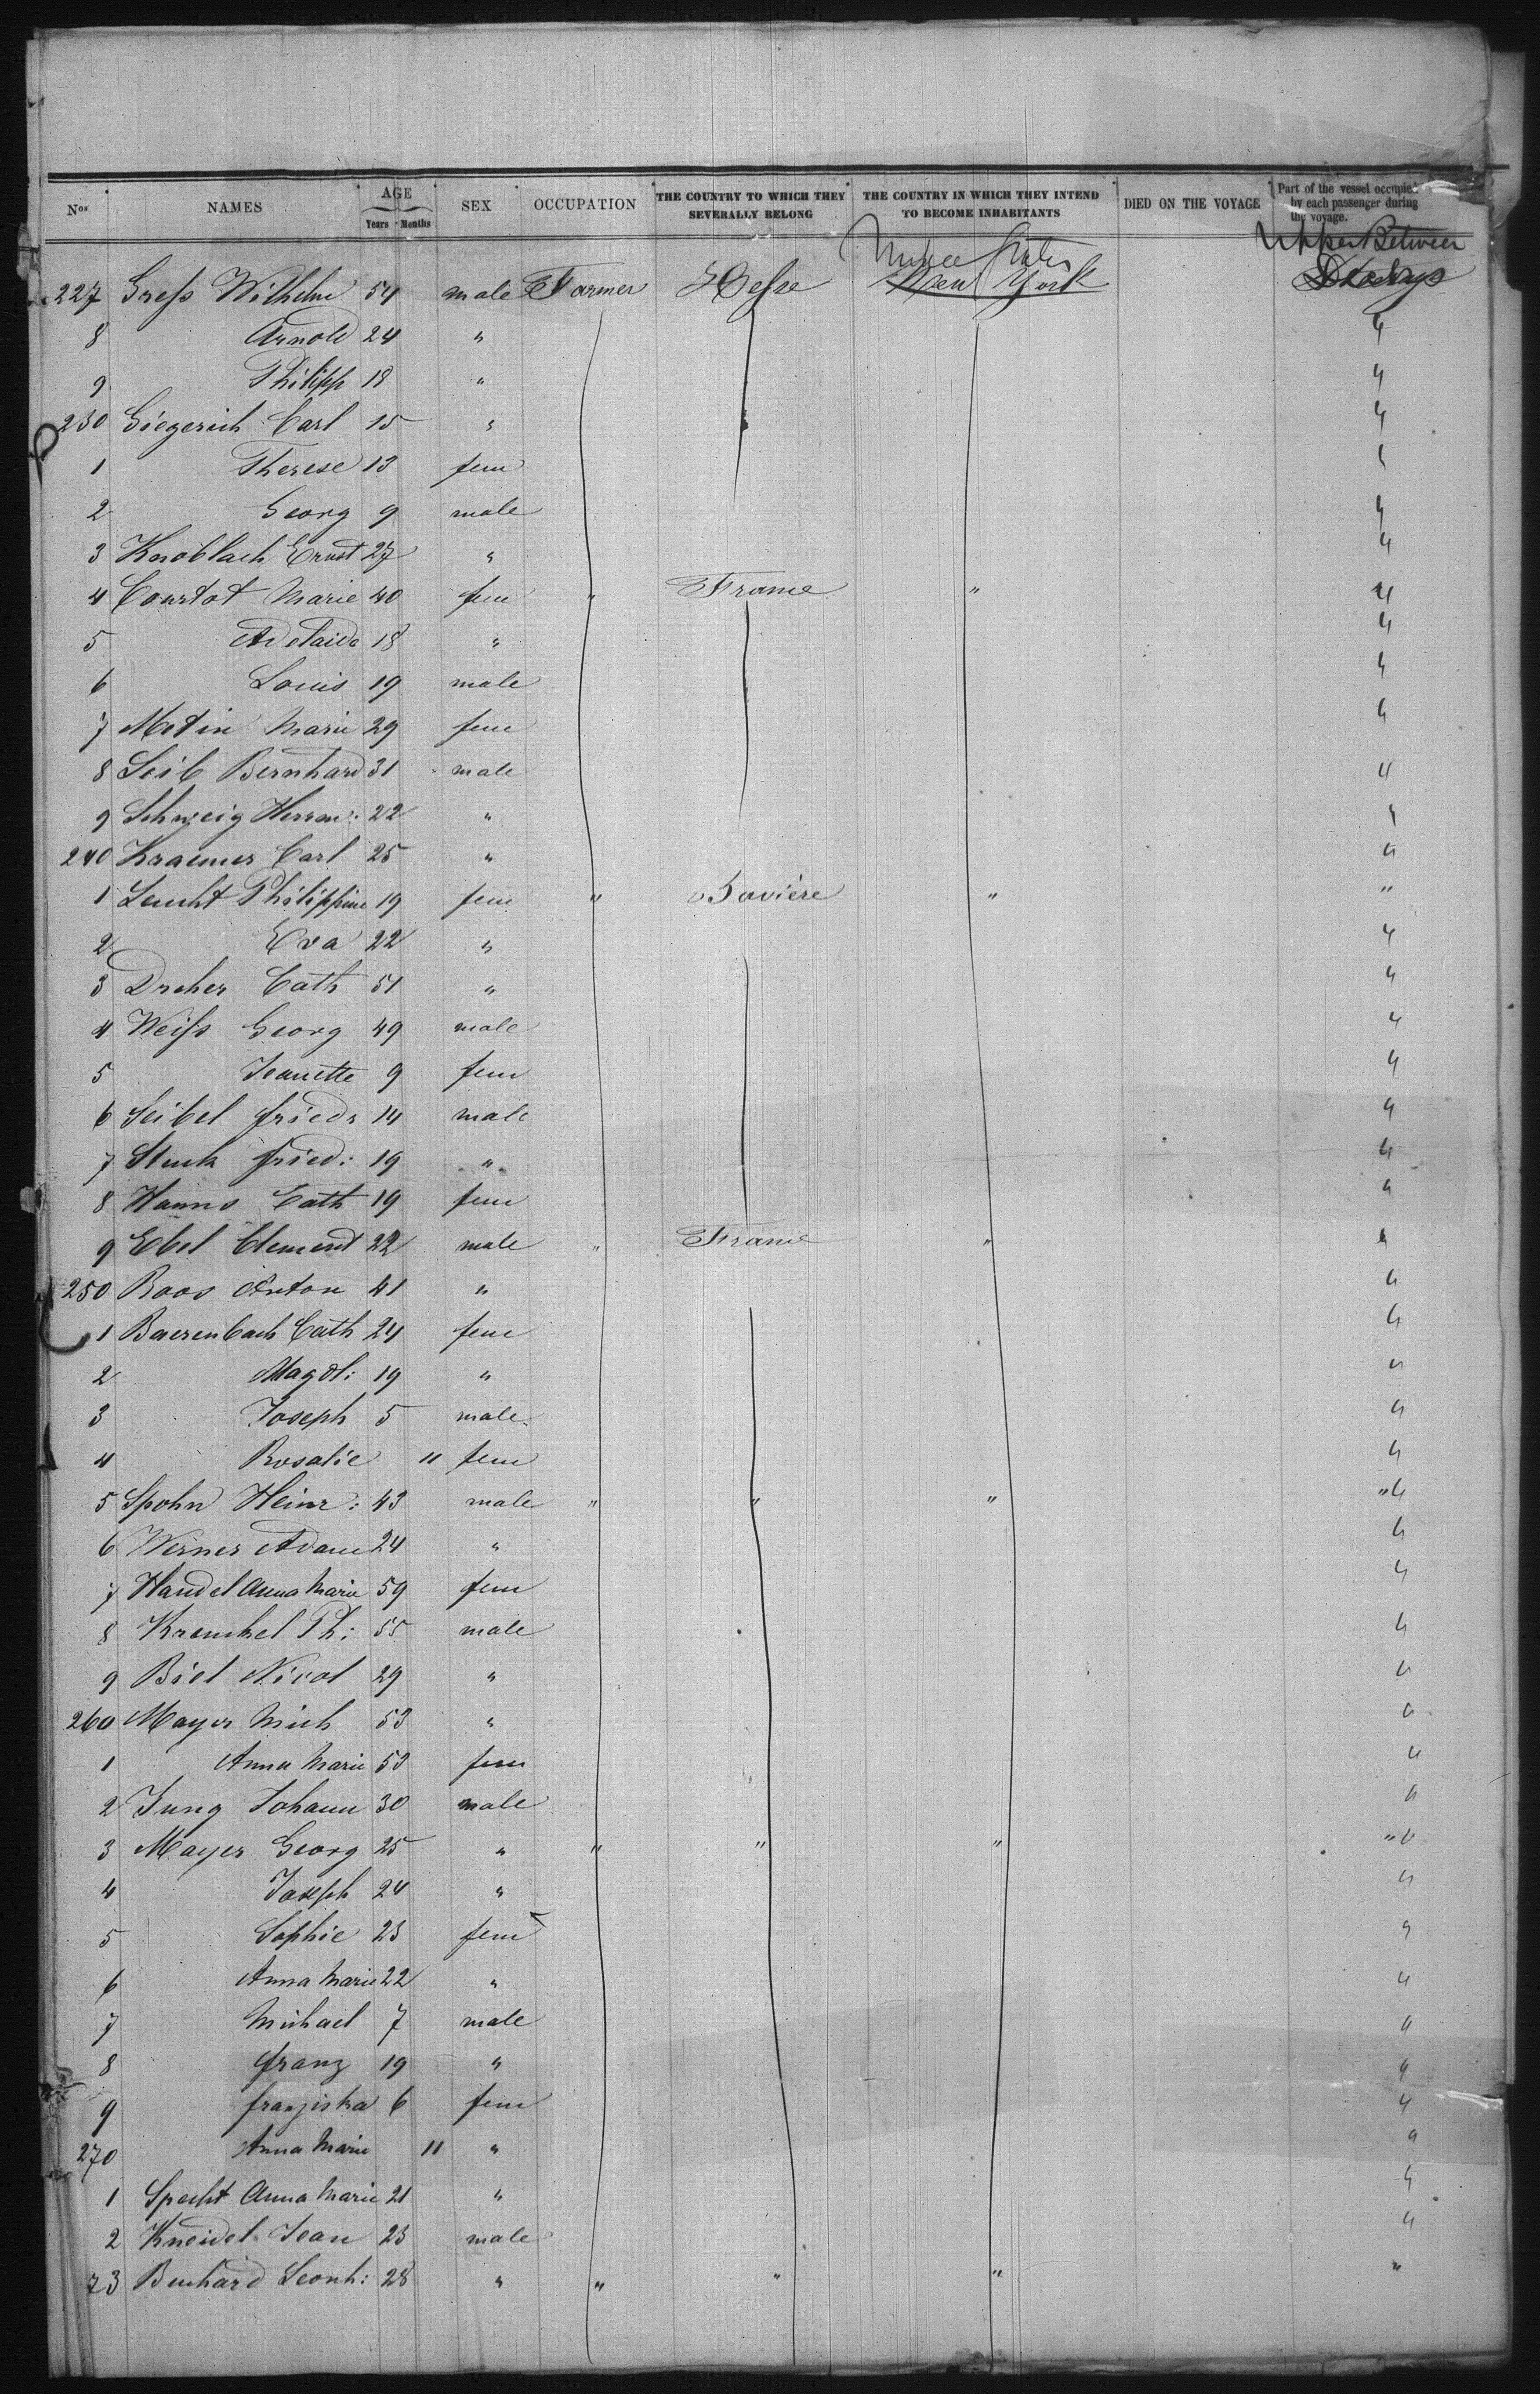 Nos NAMES AGE Years Months SEX OCCUPATION THE COUNTRY TO WHICH THEY SEVERALLY BELONG THE COUNTRY IN WHICH THEY INTEND TO BECOME INHABITANTS DIED ON THE VOYAGE Part of the vessel occupied by each passenger during the voyage.
United States Upper Between
227 Gress Wilhelm 54 male Farmer Hesse New York
8 Arnold 24 " "
9 Philipp 18 " "
230 Giegerich Carl 15 " "
1 Therese 13 fem "
2 Georg 9 male "
3 Knoblach Ernst 27 " "
4 Courtot Marie 40 fem " France " "
5 Adelaide 18 " "
6 Louis 19 male "
7 Metin Marie 29 fem "
8 Leib Bernhard 31 male "
9 Schweig Herrm: 22 " "
240 Kraemer Carl 25 " "
1 Leucht Philippine 19 fem " Bavière " "
2 Eva 22 " "
3 Dreher Cath 51 " "
4 Weiss Georg 49 male "
5 Jeanette 9 fem "
6 Seibel Friedr 14 male "
7 Stuck Fried: 19 " "
8 Hanns Cath 19 fem "
9 Ebel Clement 22 male " France " "
250 Roos Anton 41 " "
1 Baerenbach Cath 24 fem "
2 Magdl: 19 " "
3 Joseph 5 male "
4 Rosalie 11 fem "
5 Spohn Heinr: 43 male " " " "
6 Werner Adam 24 " "
7 Handel Anna Marie 59 fem "
8 Krenckel Ph: 55 male "
9 Biel Nicol 29 " "
260 Mayer Mich 53 " "
1 Anna Marie 53 fem "
2 Jung Johann 30 male "
3 Mayer Georg 25 " " " " "
4 Joseph 24 " "
5 Sophie 23 fem "
6 Anna Marie 22 " "
7 Michael 7 male "
8 Franz 19 " "
9 Franziska 6 fem "
270 Anna Marie 11 " "
1 Specht Anna Marie 21 " "
2 Kneidel Jean 23 male "
73 Bernhard Leonh: 28 " " " " "